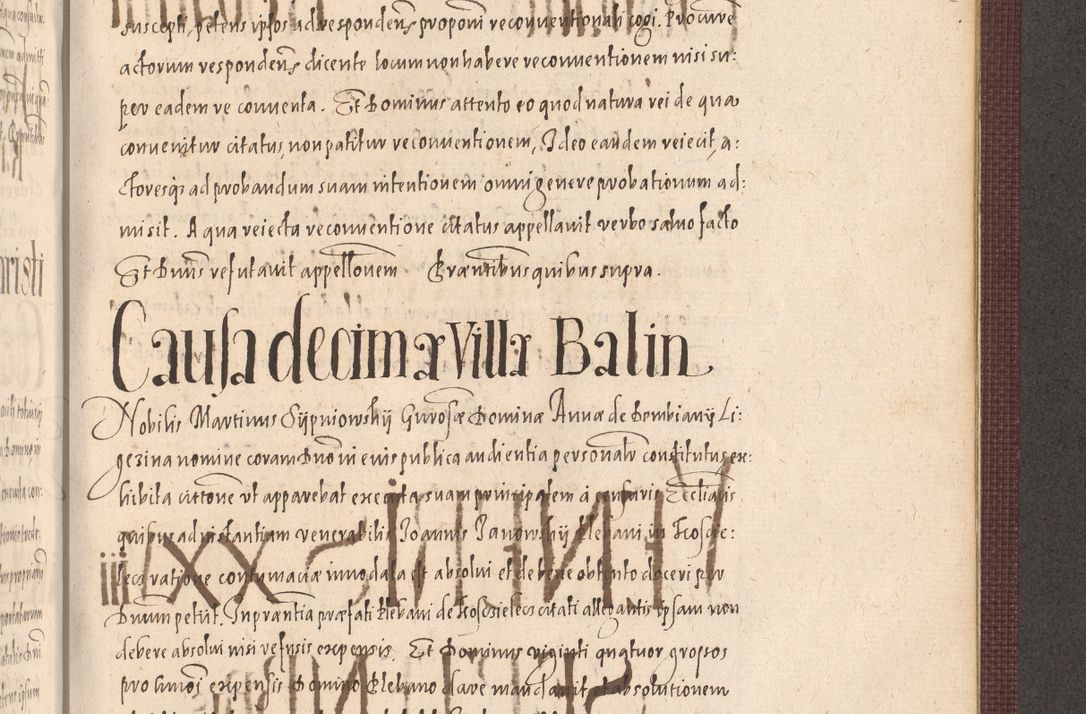 suscepti, petens ipsos ad respondendum proponi reconventionali cogi. Procurre
actorum respondens dicente locum non habere reconventionem nisi su:
per eadem re conventa. Et Dominus attento eo quod natura rei de qua
convenitur citatus, non patitur reconventionem, Ideo eandem reiecit, a:
ctoresq; ad probandum suam intentionem omni genere probationum ad:
misit. A qua reiecta reconventione citatus appellavit verbo salvo facto
Et Dnus refutavit appellonem Præntibus quibus supra.
Causa decima Villæ Balin
Nobilis Martinus Sÿpniowskÿ Generosæ Dominæ Annæ de Dembianÿ Li:
gezina nomine coram Dno in eius publica audientia personalr constitutus ex:
hibita cittone ut apparebat executa suam principalem à censuris Ecclialis
quibus ad instantiam venerabilis Joannis Janowskÿ Plebani in Koscie:
lecz ratione contumaciæ innodata est absolui et debere obtento doceri per
Dnum petiit. In præntia præfati Plebani de Kościelecz citati allegantis ipsam non
debere absolui nisi refusis expensis. Et Dominus viginti quatuor grossos
pro expensis Domino Plebano dare mandavit et absolutionem